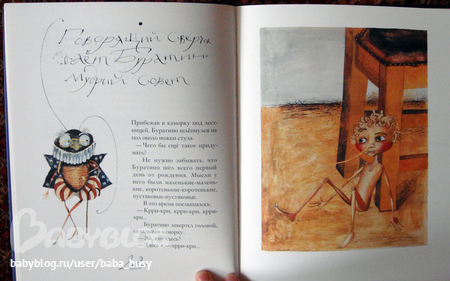 Говорящий Сверчок
даёт Буратино
мудрый совет
Прибежав в каморку под лест-
ницей, Буратино шлёпнулся на
пол около ножки стула.
— Чего бы ещё такое приду-
мать?
Не нужно забывать, что
Буратино шёл всего первый
день от рождения. Мысли у
него были маленькие-малень-
кие, коротенькие-коротенькие,
пустяковые-пустяковые.
В это время послышалось:
— Крри-кри, крри-кри, крри-
кри...
Буратино завертел головой,
каморку.
здесь?
крри-кри...
BABYBLOG
babyblog.ru/user/baba_busy